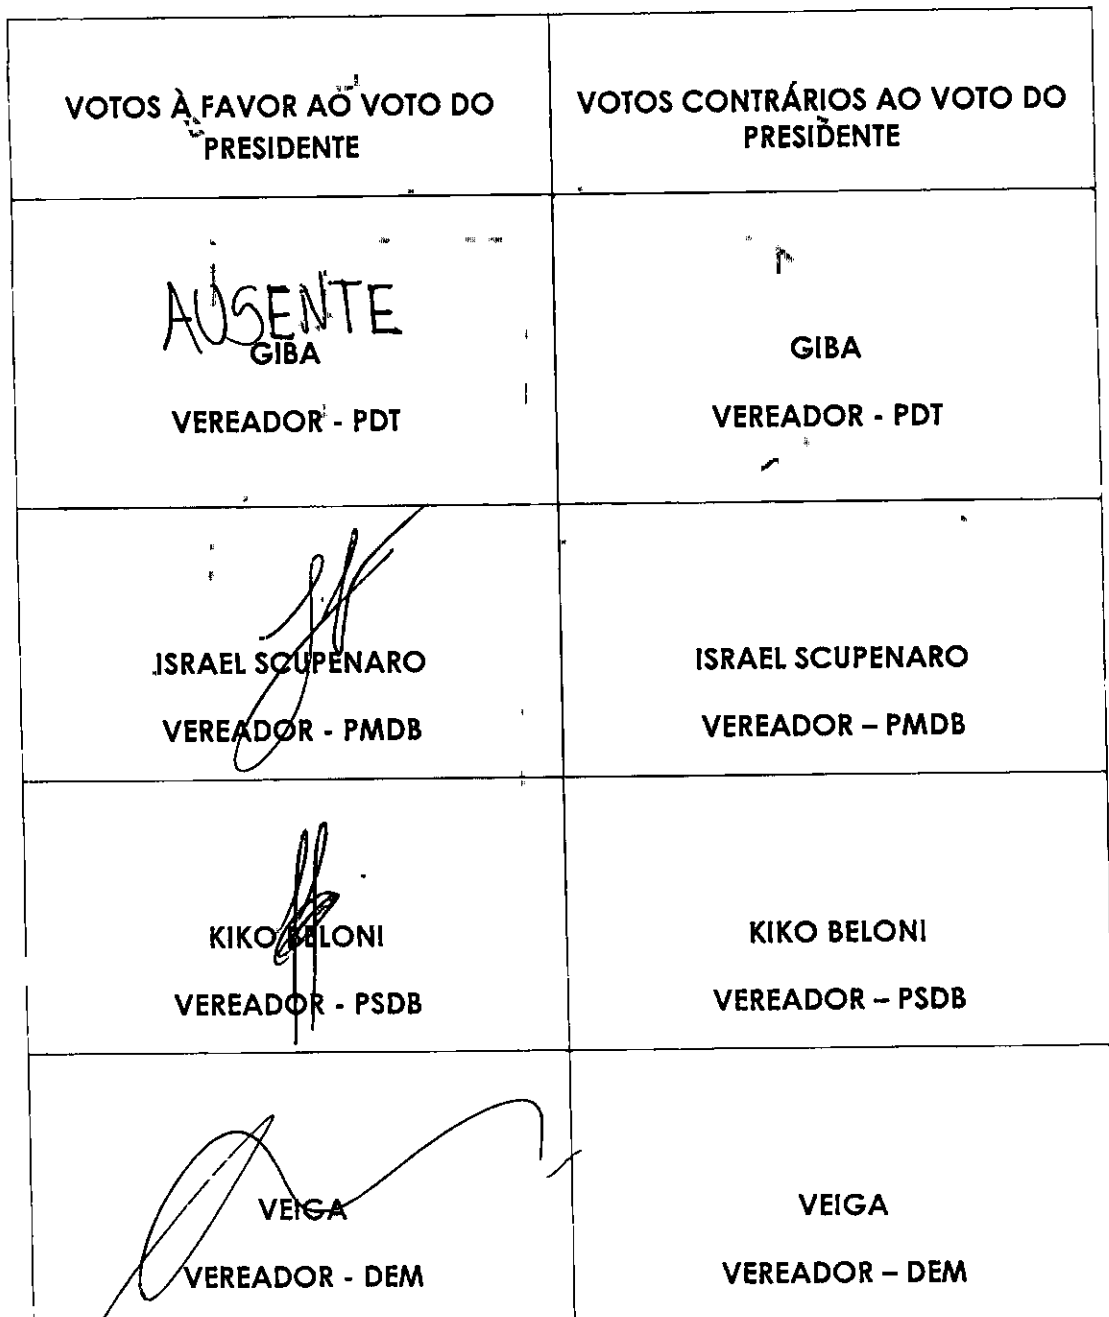 VOTOS À FAVOR AO VOTO DO
PRESIDENTE
VOTOS CONTRÁRIOS AO VOTO DO
PRESIDENTE
AUSENTE
GIBA
VEREADOR - PDT
GIBA
VEREADOR - PDT
ISRAEL SCUPENARO
VEREADOR - PMDB
ISRAEL SCUPENARO
VEREADOR – PMDB
KIKO BELONI
VEREADOR - PSDB
KIKO BELONI
VEREADOR – PSDB
VEIGA
VEREADOR - DEM
VEIGA
VEREADOR – DEM